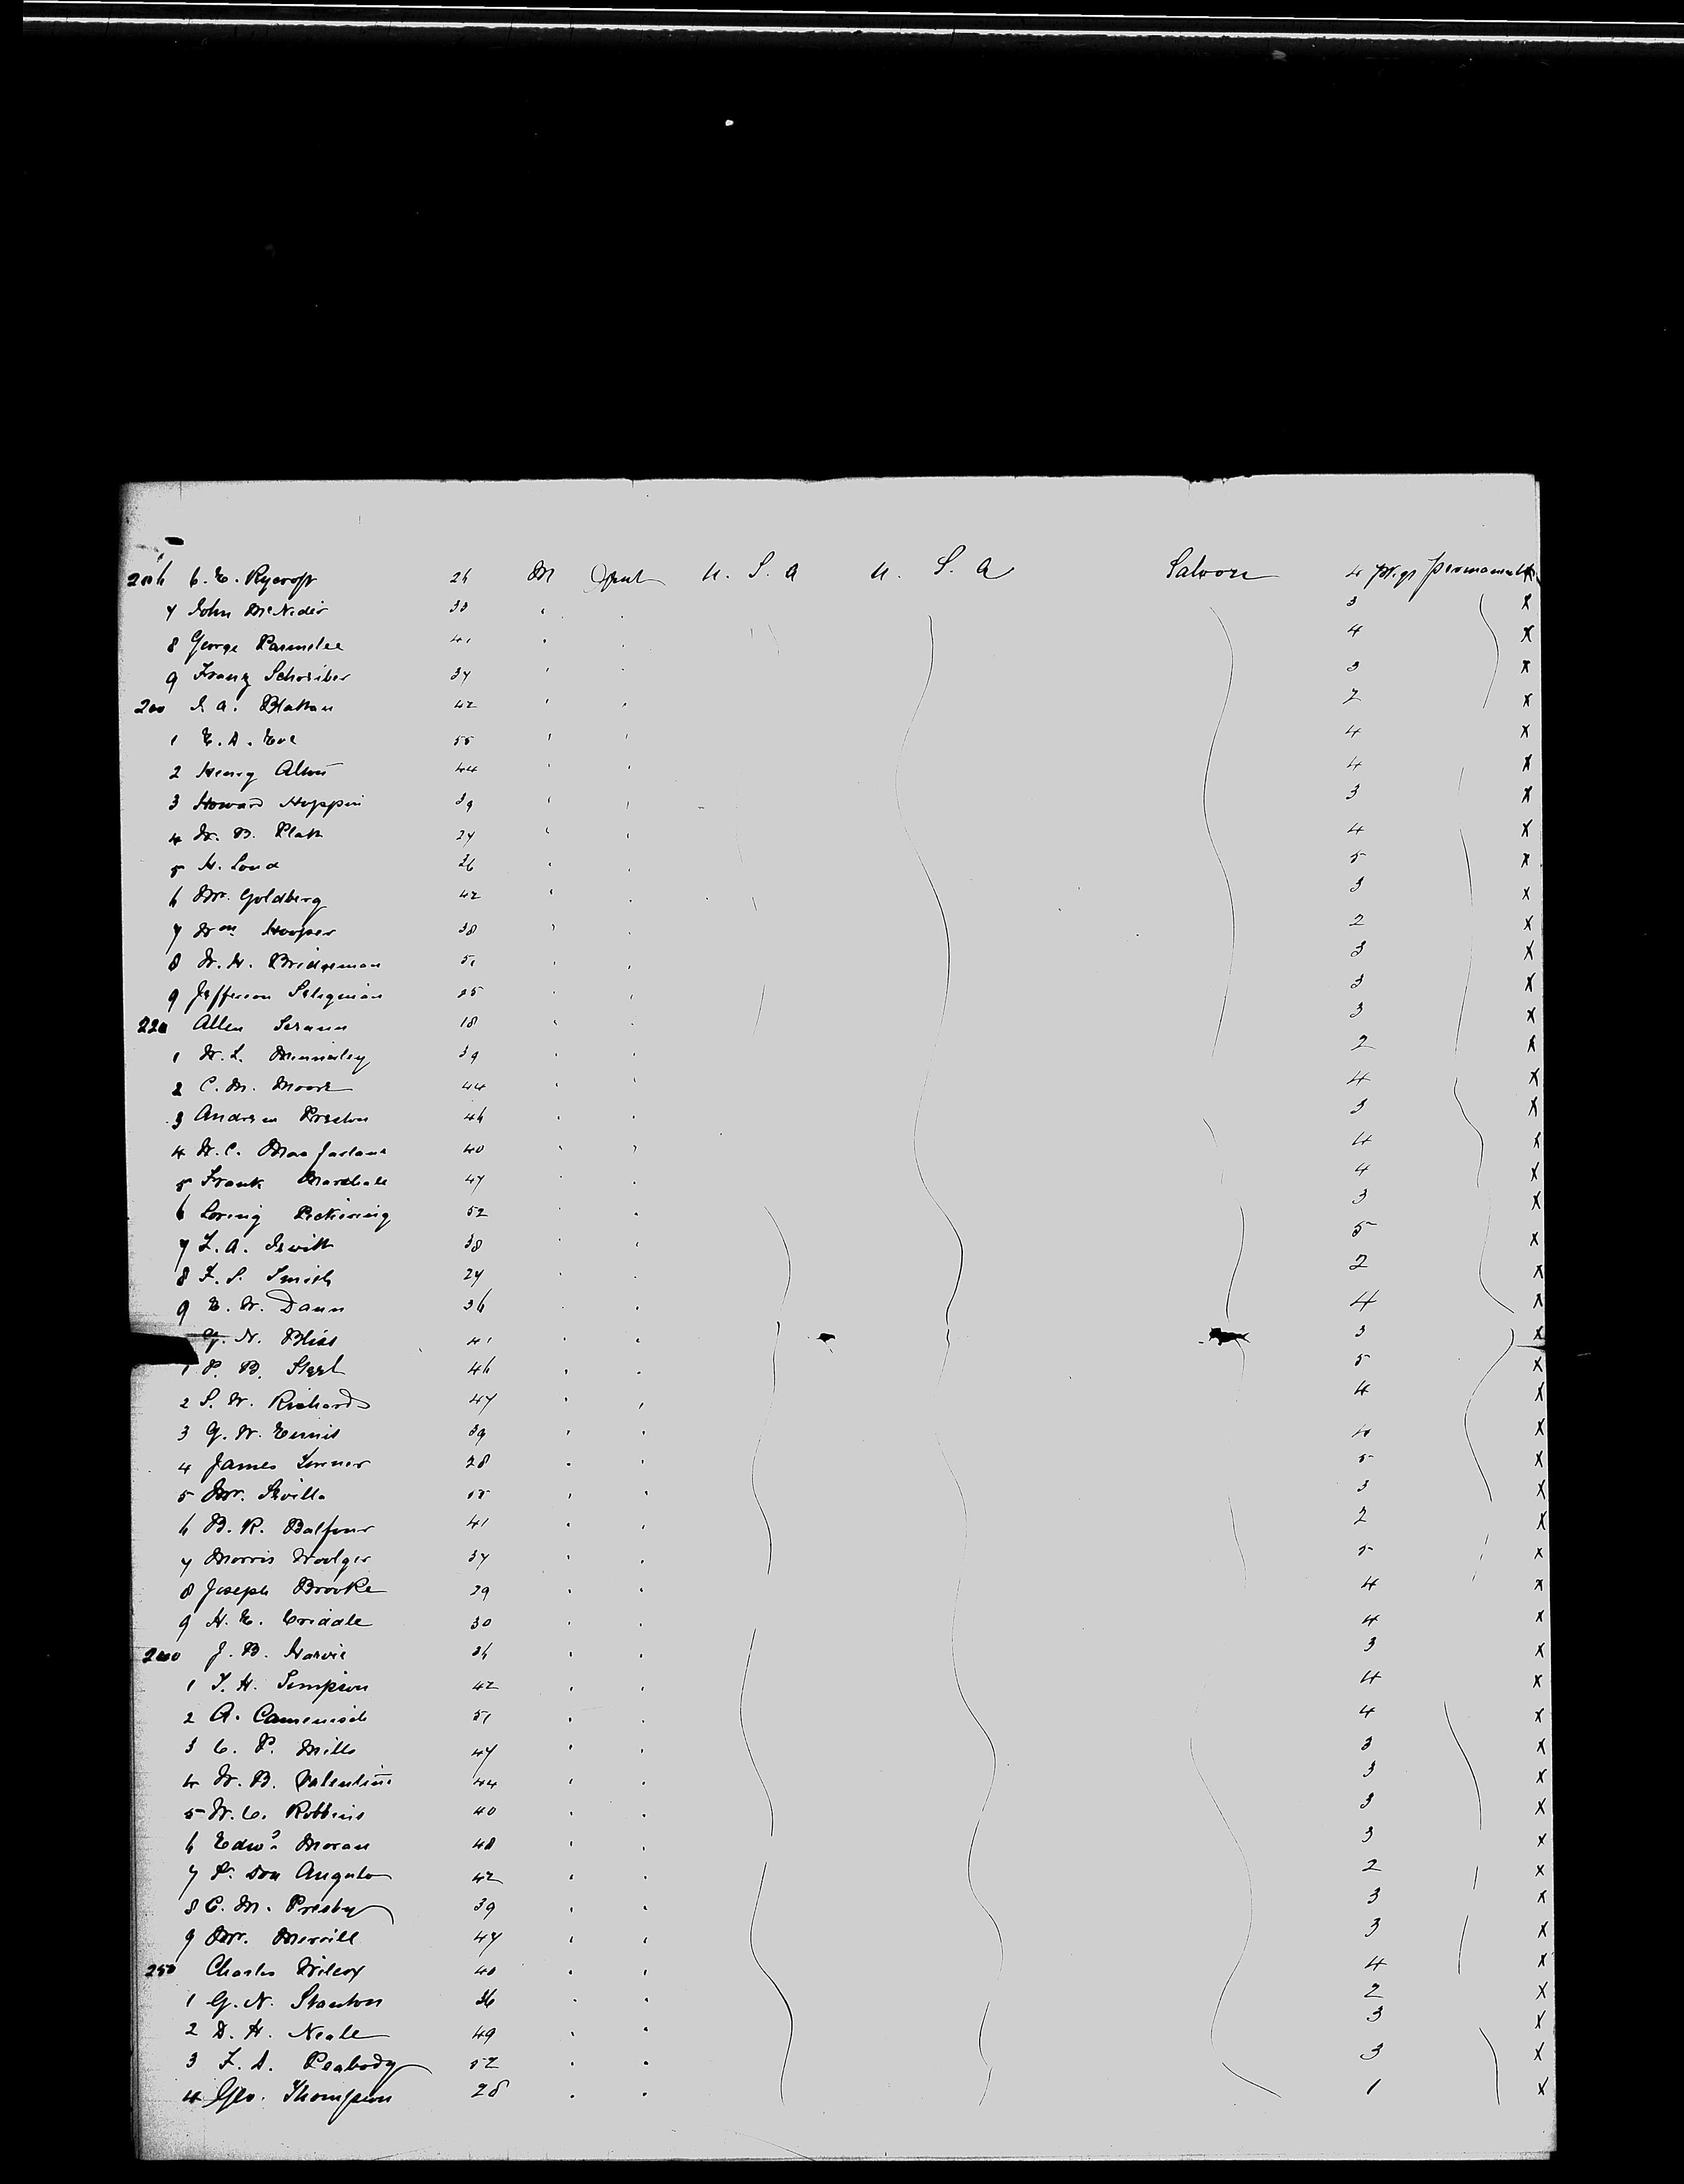 206 C. E. Rycroft 26 M Gent U. S. A U. S. A Saloon 4 pkgs permanent X
7 John McNider 33 3 X
8 George Parmelee 41 4 X
9 Franz Schreiber 37 3 X
42 2 X
1 55 4 X
2 Henry 44 4 X
3 Howard Hoppin 39 3 X
4 W. B. Platt 27 4 X
5 H. 26 5 X
6 Mr. Goldberg 42 3 X
7 Wm Hooper 38 2 X
8 W. H. Bridgeman 51 3 X
9 Jefferson Seligman 25 3 X
220 Allen 18 3 X
1 W. L. 39 2 X
2 C. M. Moore 44 4 X
3 Andrew Preston 46 3 X
4 W. C. Macfarlane 40 4 X
5 Frank Marshall 47 4 X
6 Loring Pickering 52 3 X
7 38 5 X
8 F. S. Smith 27 2 X
9 E. W. Dann 36 4 X
N. Bliss 41 3 X
1 P. B. 46 5 X
2 S. W. Richards 47 4 X
3 G. W. Ennis 39 X
4 James 28 5 X
5 Mr. 3 X
6 B. R. Balfour 41 2 X
7 Morris 37 5 X
8 Joseph Brooke 29 4 X
9 H. E. Criddle 30 4 X
J. B. Harvie 36 3 X
1 T. H. Simpson 42 4 X
2 A. Camenisch 51 4 X
3 C. P. Mills 47 3 X
4 W. B. Valentine 44 3 X
5 W. C. Robbins 40 3 X
6 Edwd Moran 48 3 X
7 P. Don Angulo 42 2 X
8 C. M. Presby 39 3 X
9 Mr. Merrill 47 3 X
250 Charles Wilcox 40 4 X
1 G. N. Stanton 36 2 X
2 D. H. Neale 49 3 X
3 F. A. Peabody 52 3 X
4 Geo. Thompson 28 1 X